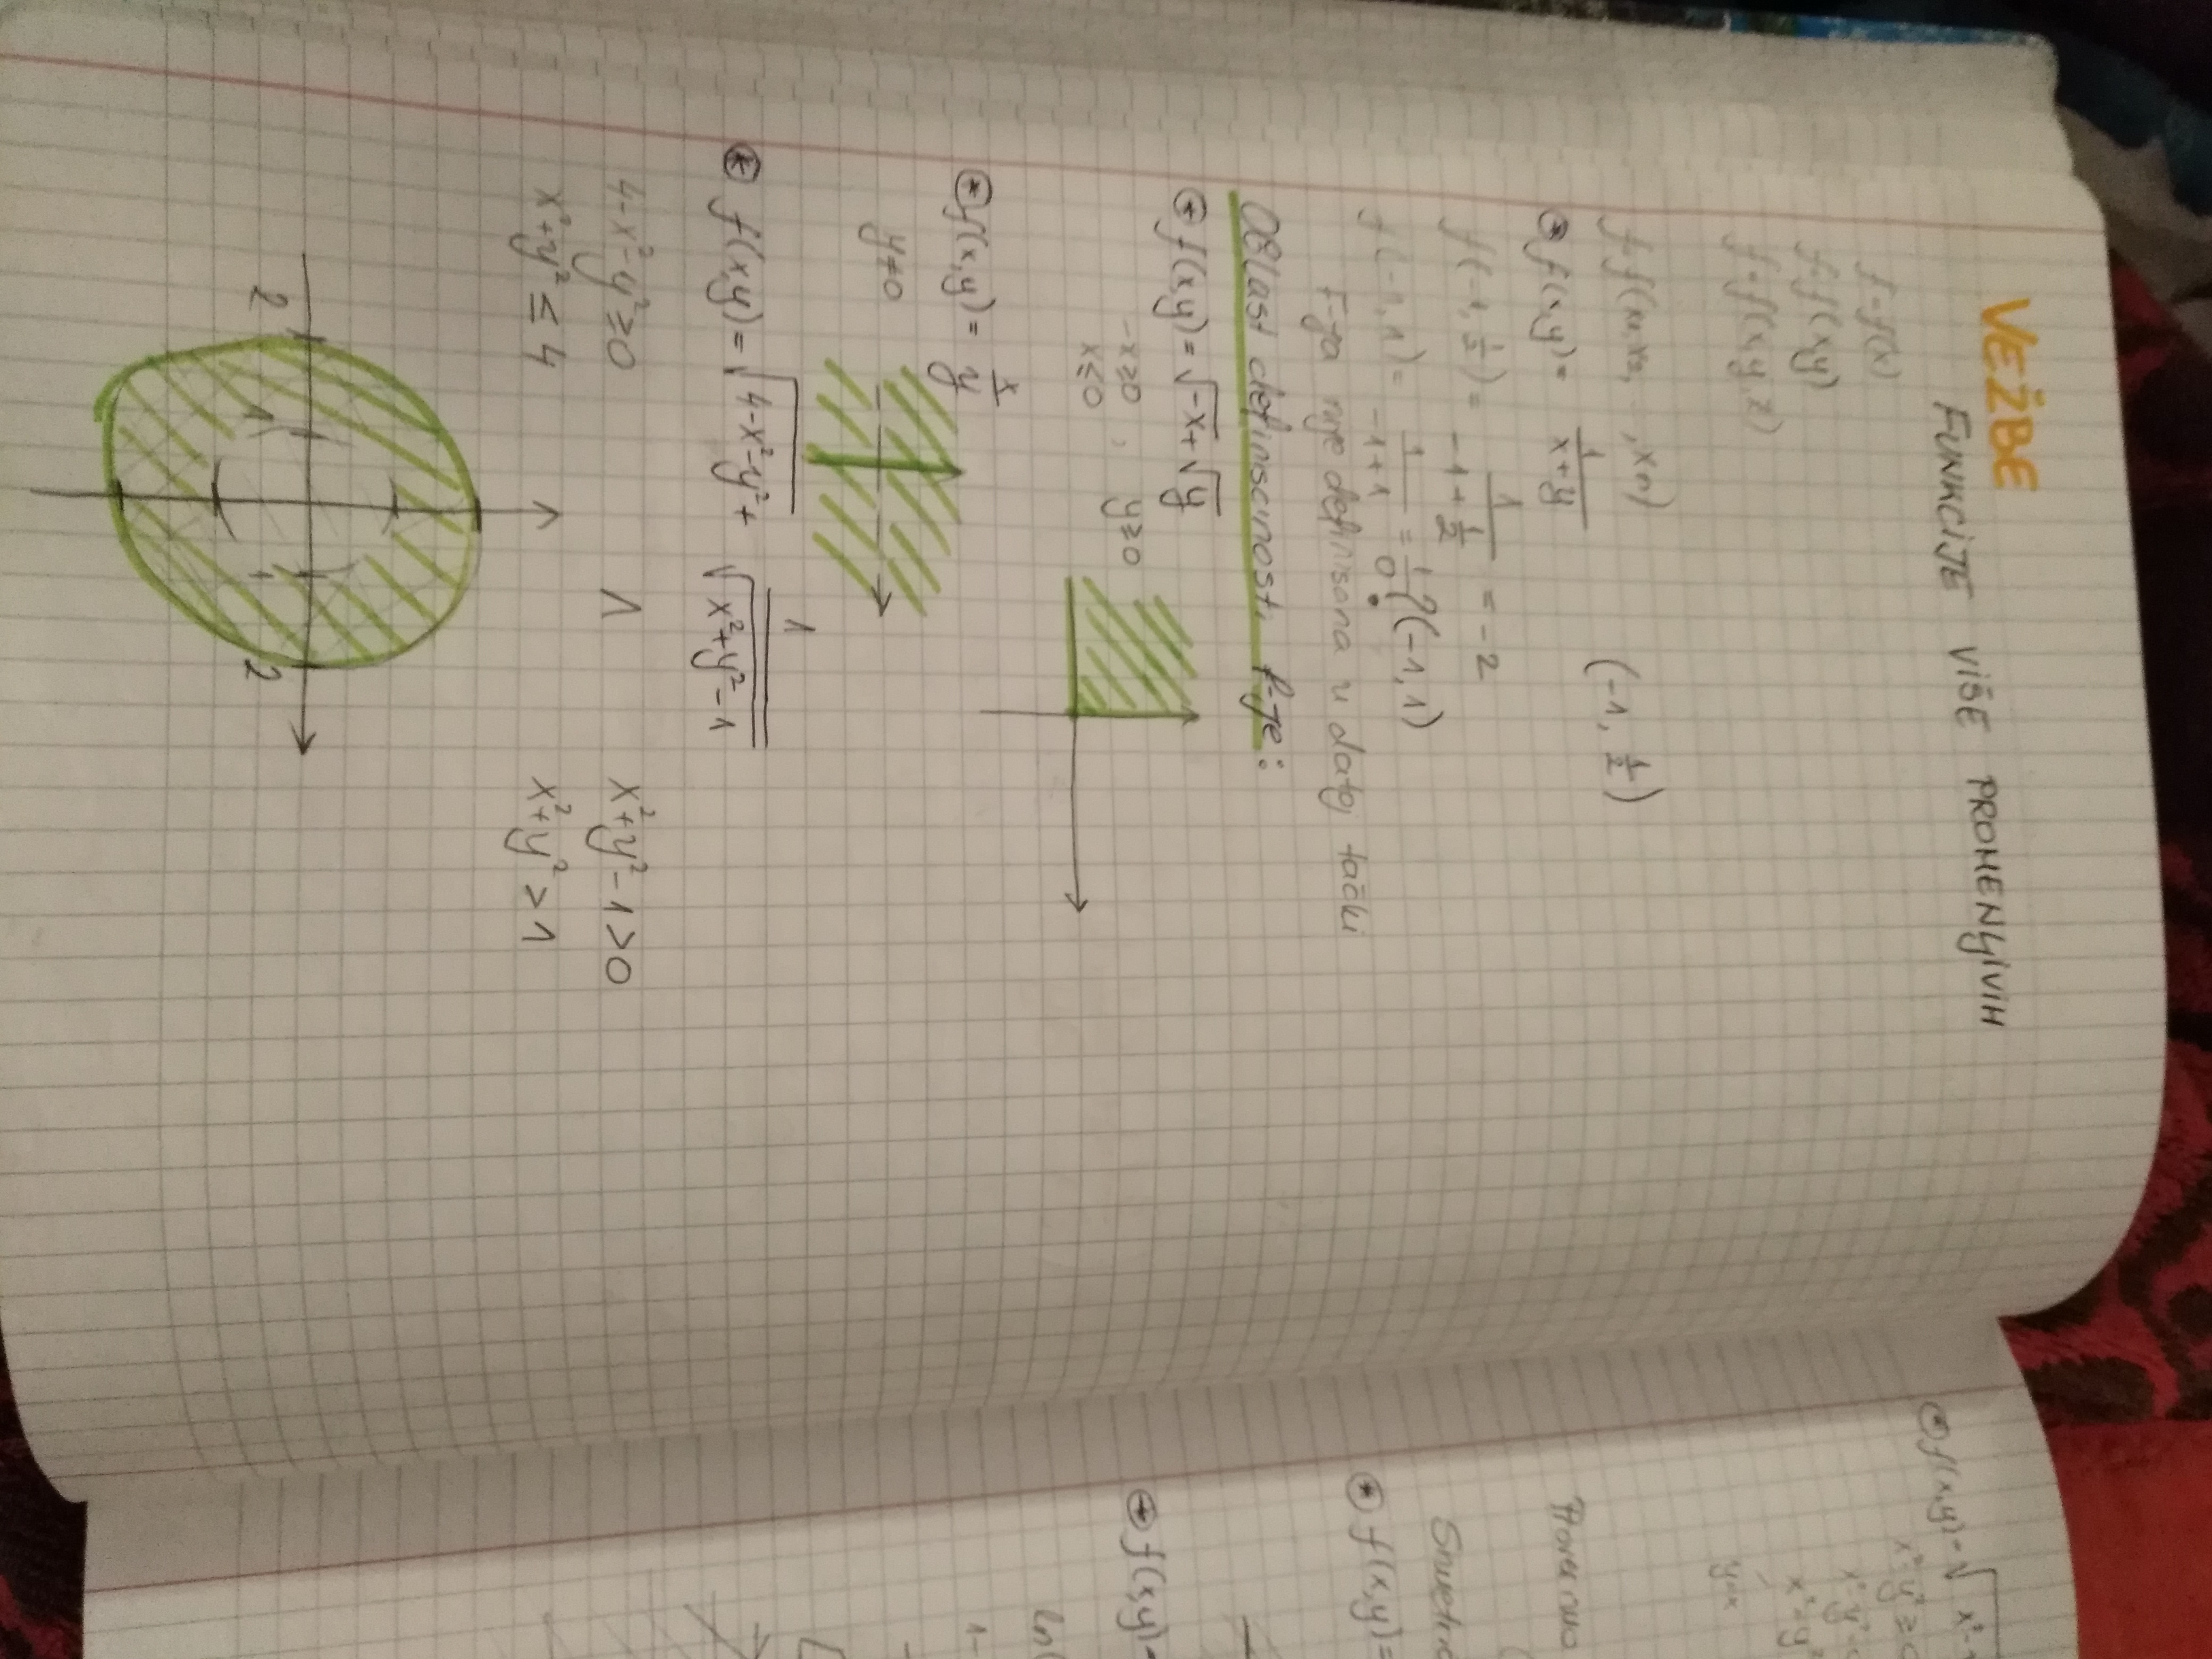 VEŽBE
FUNKCIJE VIŠE PROMENLJIVIH
f=f(x)
f=f(x,y)
f=f(x,y,z)
f=f(x1,x2,..,xn)
⊛ f(x,y) = 1/(x+y) (-1, 1/2)
f(-1, 1/2) = 1/(-1+1/2) = -2
f(-1,1) = 1/(-1+1) = 1/0 ? (-1,1)
F-ja nije definisana u datoj tački
OBlast definisanosti f-je:
⊛ f(x,y) = √-x + √y
-x≥0, y≥0
x≤0
⊛ f(x,y) = x/y
y≠0
⊛ f(x,y) = √4-x²-y² + 1/√x²+y²-1
4-x²-y²≥0 ∧ x²+y²-1>0
x²+y² ≤ 4 x²+y² > 1
2 1 2
⊛ f(x,y) = √x²-
x²-y² ≥0
x²-y²=
x²=y²
y=x
⊛ f(x,y) =
⊛ f(x,y) =
ln(
1-